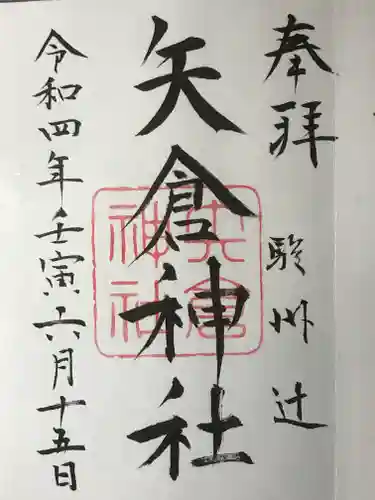 奉拝 駿州辻
矢倉神社
矢倉
神社
令和四年壬寅六月十五日